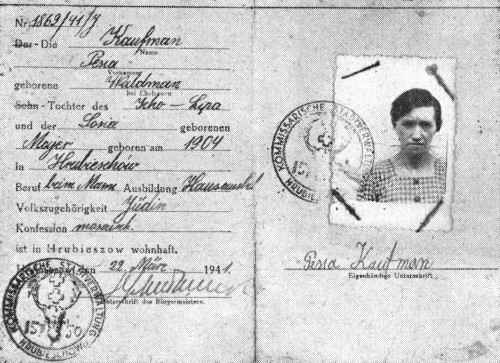 Nr. 1869/41/J
Der - Die Kaufman
Name
Pesia
Vorname
geborene Waldman
bei Ehefrauen
Sohn - Tochter des Icko - Lejra
und der Soria geborenen
Mejer geboren am 1904
in Hrubieschów
Beruf beim Mann Ausbildung
Volkszugehörigkeit Jüdin
Konfession mosaisch
ist in Hrubieszow wohnhaft.
den 22. März 1941.
Unterschrift des Bürgermeisters.
KOMMISSARISCHE STADTVERWALTUNG
KOMMISSARISCHE STADTVERWALTUNG
Pesia Kaufman
Eigenhändige Unterschrift